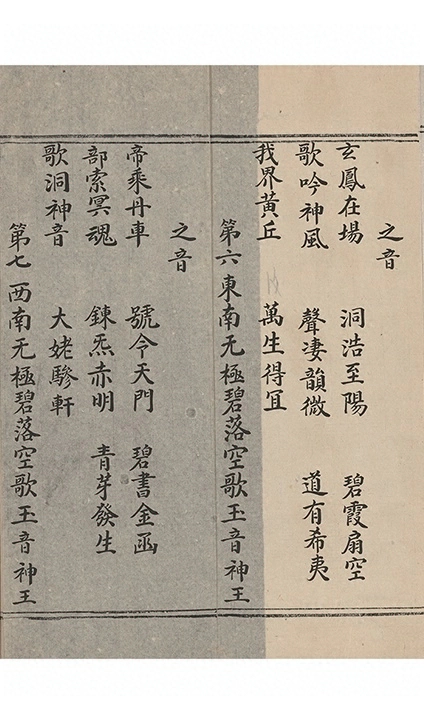 之音
玄鳳在場 洞浩至陽 碧霞扇空
歌吟神風 聲凄韻微 道有希夷
我界黃丘 萬生得宜
第六東南无極碧落空歌玉音神王
之音
帝乘丹車 號令天門 碧書金函
部索冥魂 鍊炁赤明 青芽發生
歌洞神音 大姥驂軒
第七西南无極碧落空歌玉音神王